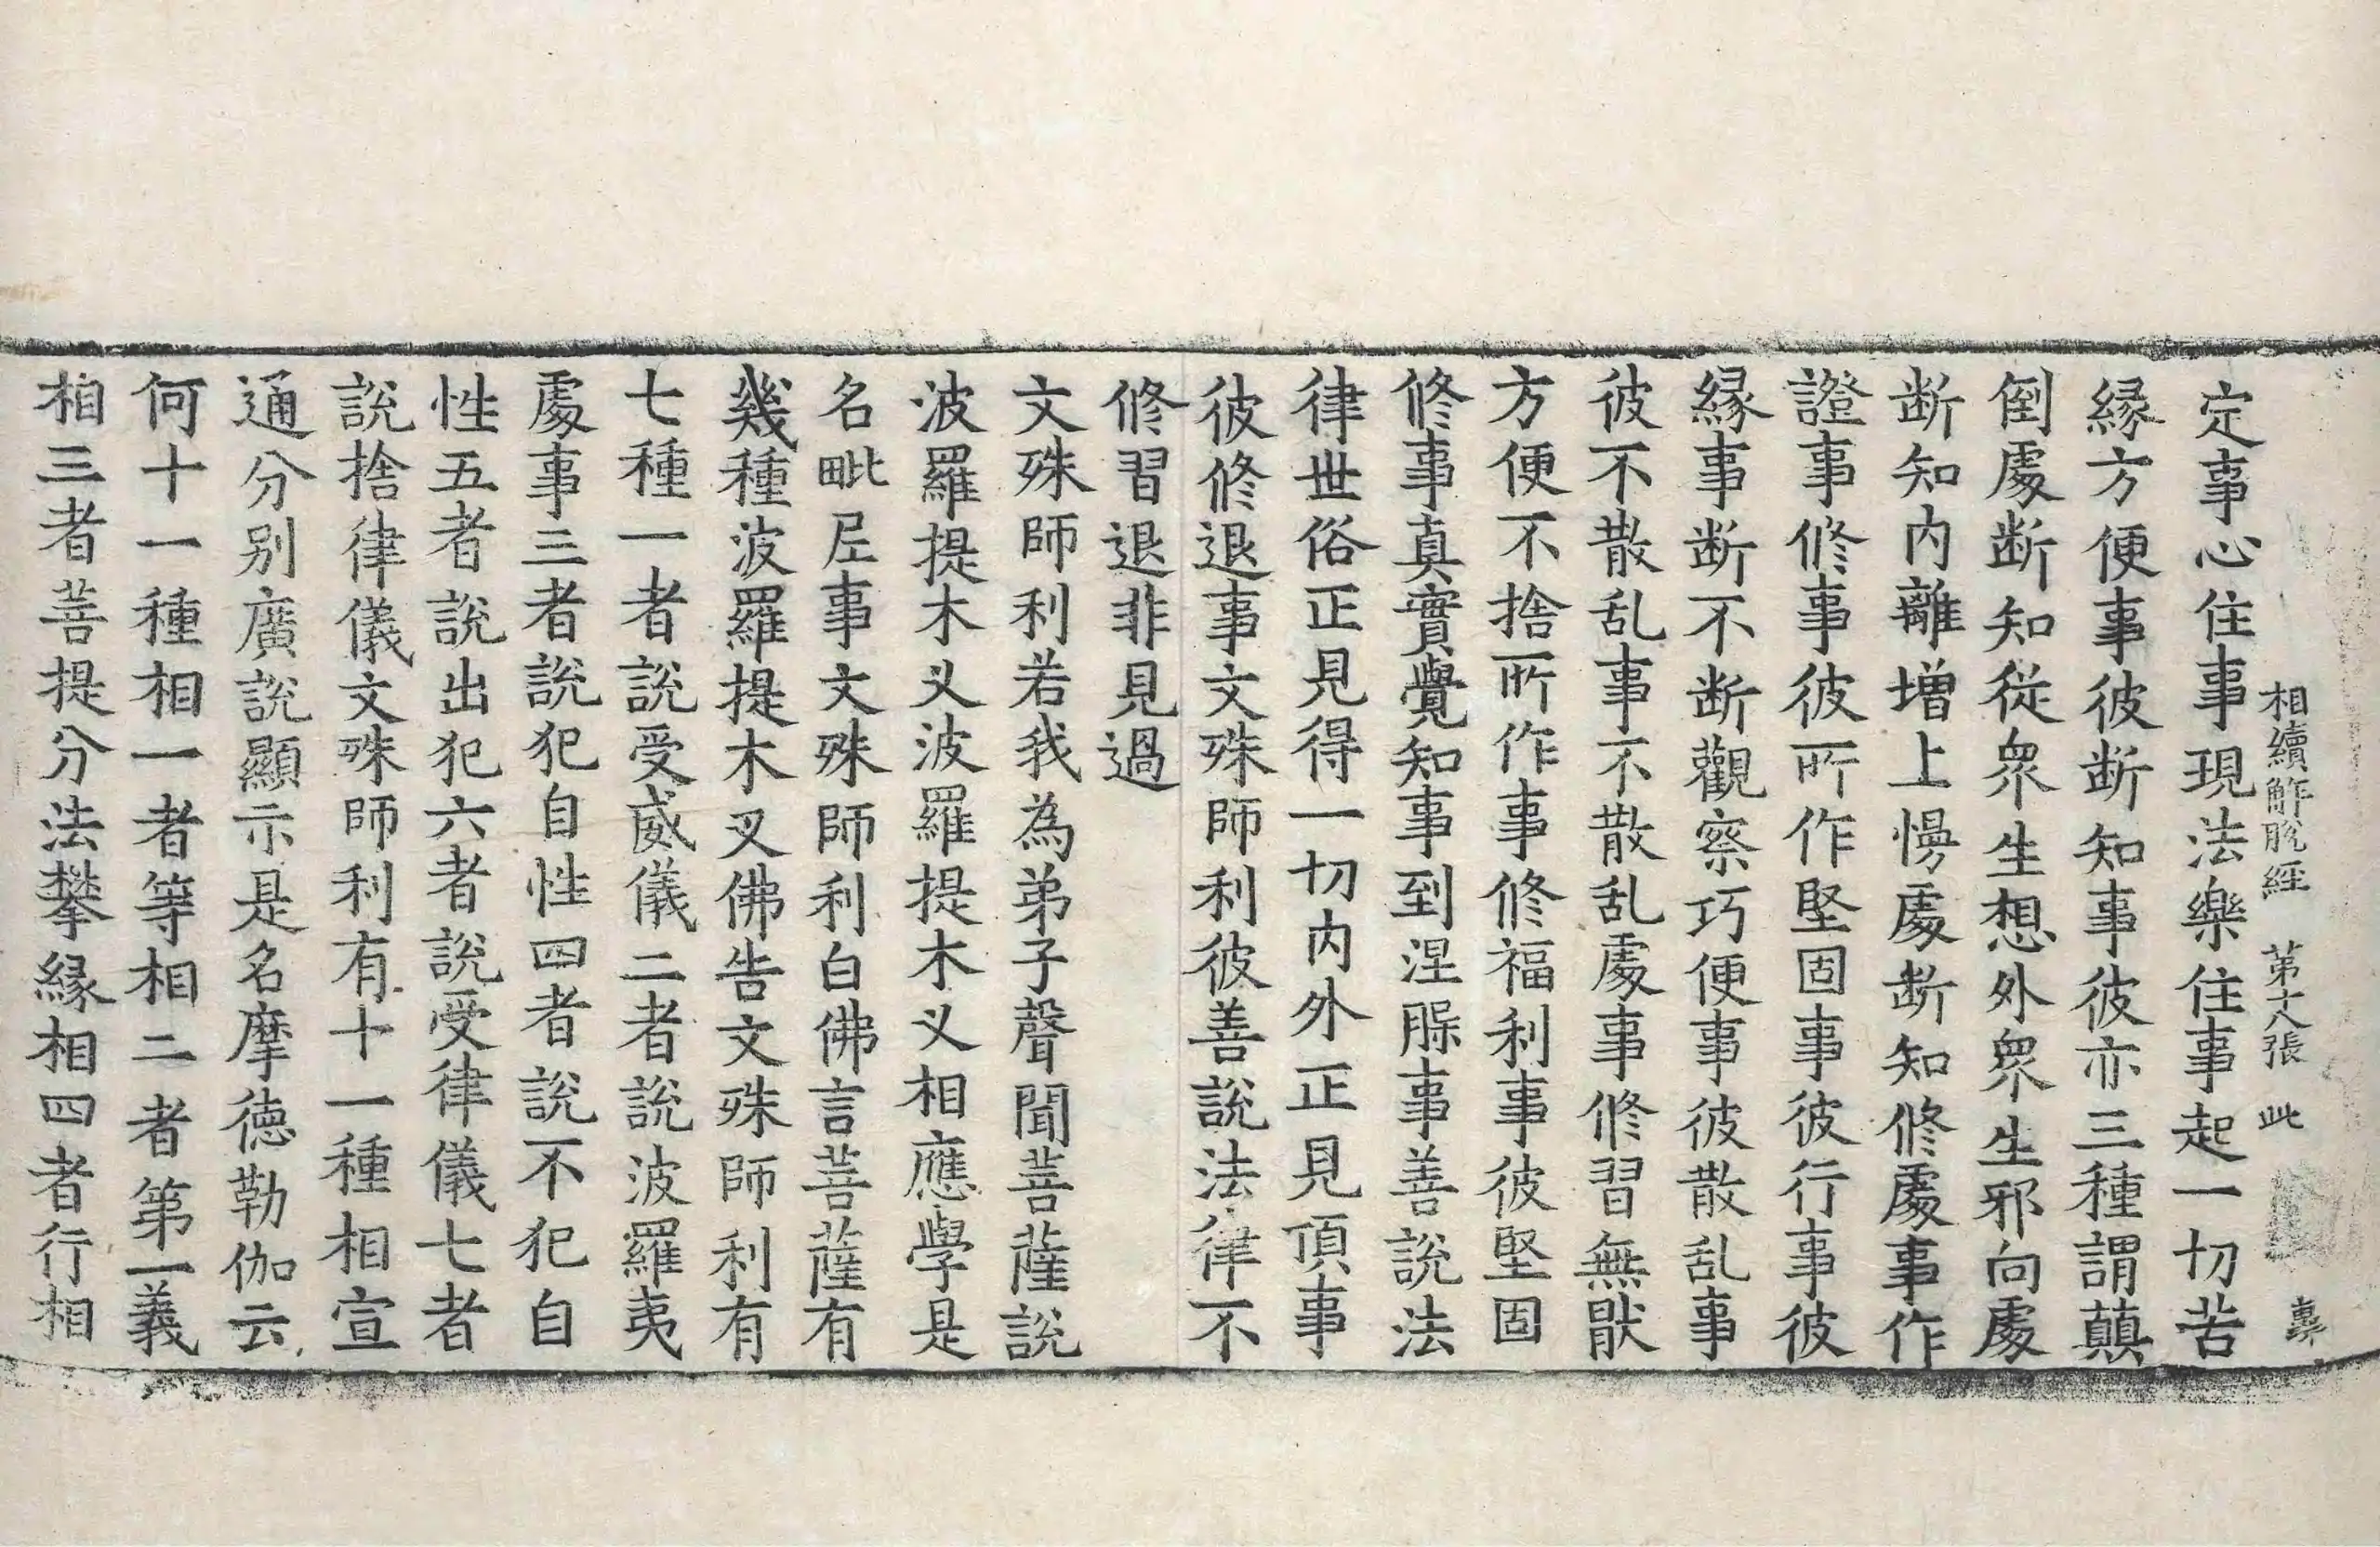 相續解脫經　第十八張　此
定事心住事現法樂住事起一切苦
緣方便事彼断知事彼亦三種謂顛
倒處断知從眾生想外眾生邪向處
断知内離增上慢處断知修處事作
證事修事彼所作堅固事彼行事彼
緣事断不断觀察巧便事彼散乱事
彼不散乱事不散乱處事修習無猒
方便不捨所作事修福利事彼堅固
修事真實覺知事到涅槃事善說法
律世俗正見得一切内外正見頂事
彼修退事文殊師利彼善說法律不
修習退非見過
文殊師利若我為弟子聲聞菩薩說
波羅提木叉波羅提木叉相應學是
名毗尼事文殊師利白佛言菩薩有
幾種波羅提木叉佛告文殊師利有
七種一者說受威儀二者說波羅夷
處事三者說犯自性四者說不犯自
性五者說出犯六者說受律儀七者
說捨律儀文殊師利有十一種相宣
通分别廣說顯示是名摩德勒伽云
何十一種相一者等相二者第一義
相三者菩提分法攀緣相四者行相